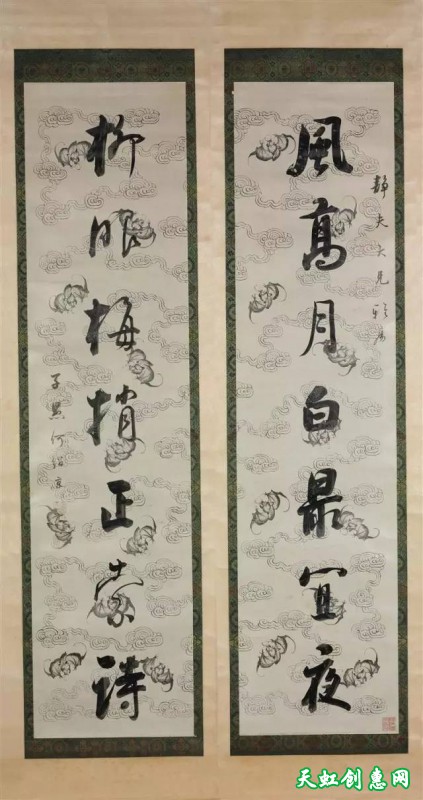 靜夫大兄雅屬
風高月白最宜夜
柳眼梅梢正索詩
子愚何紹京
天虹创惠网